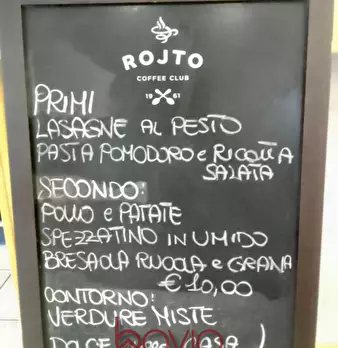 ROJTO
COFFEE CLUB
19 61
PRIMI
LASAGNE AL PESTO
PASTA POMODORO e RICOTTA
SALATA
SECONDO:
POLLO e PATATE
SPEZZATINO IN UMIDO
BRESAOLA RUCOLA e GRANA
€ 10,00
CONTORNO:
VERDURE MISTE
DOLCE